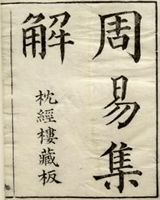 周易集
解
枕經樓藏板